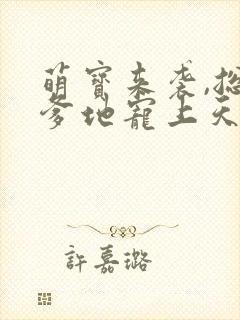 萌寶來袭,总
爹地寵上天
許嘉璐